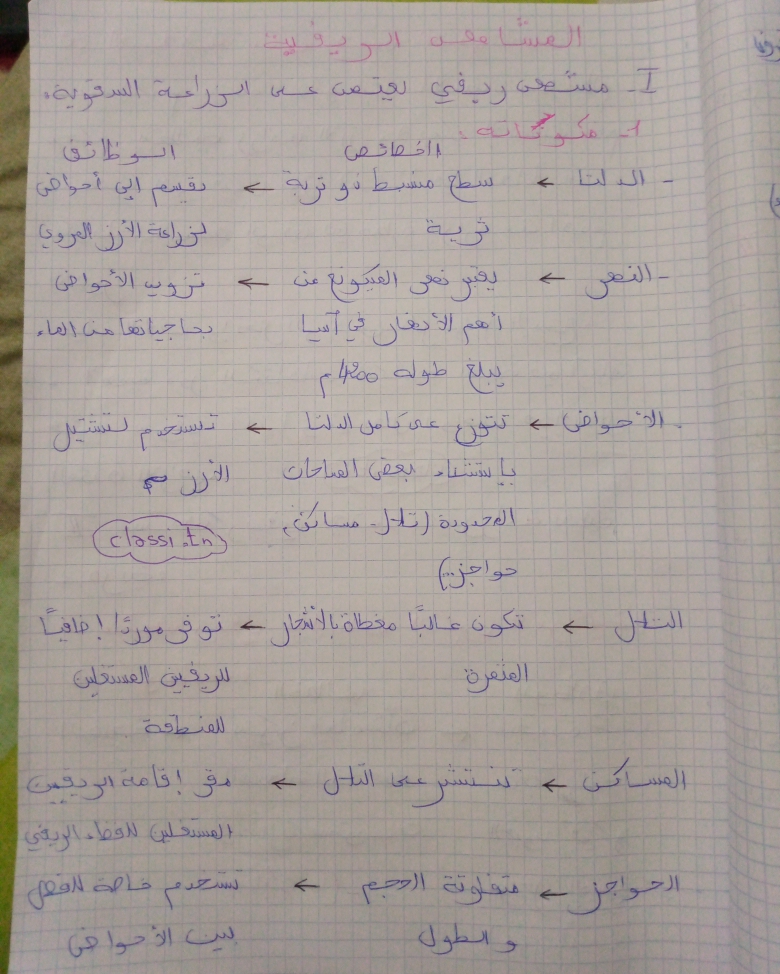 المشاهد الريفية
I- مشهد ريفي يعتمد على الزراعة السقوية.
1- مكوناته:
الخصائص الوظائف
- الدلتا ← سطح منبسط ذو تربة ← تقسم إلى أحواض
ثرية لزراعة الأرز المروي
- النهر ← يعتبر نهر الميكونغ من ← تزويد الأحواض
أهم الأنهار في آسيا بحاجياتها من الماء
يبلغ طوله 4200 م
- الأحواض ← تتوزع على كامل الدلتا ← تستخدم لتشتيل
باستثناء بعض المساحات الأرز
المحدودة (تلال، مساكن،
classi.tn
حواجز...)
التلال ← تكون غالبًا مغطاة بالأشجار ← توفر موردًا إضافيًا
المثمرة للريفيين المستغلين
للمنطقة
المساكن ← تنتشر على التلال ← مقر إقامة الريفيين
المستغلين للفضاء الريفي
الحواجز ← متفاوتة الحجم ← تستخدم خاصة للفصل
والطول بين الأحواض